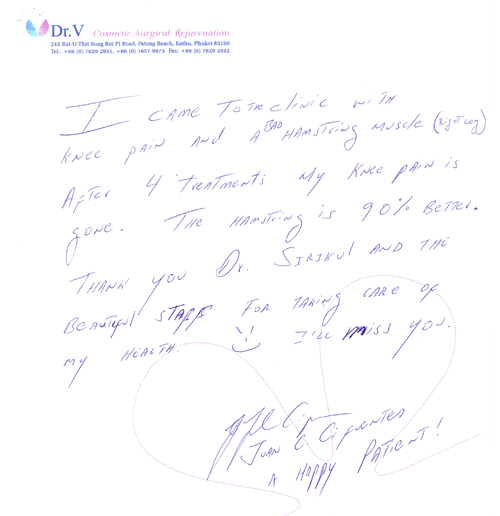 Dr.V Cosmetic Surgical Rejuvenation
243 Rat-U-Thit Song Roi Pi Road, Patong Beach, Kathu, Phuket 83150
Tel.: +66 (0) 7629 2931, +66 (0) 1657 9973 Fax: +66 (0) 7629 2932
I CAME TO THE CLINIC WITH
KNEE PAIN AND A BAD HAMSTRING MUSCLE (RIGHT LEG)
AFTER 4 TREATMENTS MY KNEE PAIN IS
GONE. THE HAMSTRING IS 90% BETTER.
THANK YOU DR. SIRIKUL AND THE
BEAUTIFUL STAFF FOR TAKING CARE OF
MY HEALTH. I'LL MISS YOU.
JUAN C CIFUENTES
A HAPPY PATIENT!